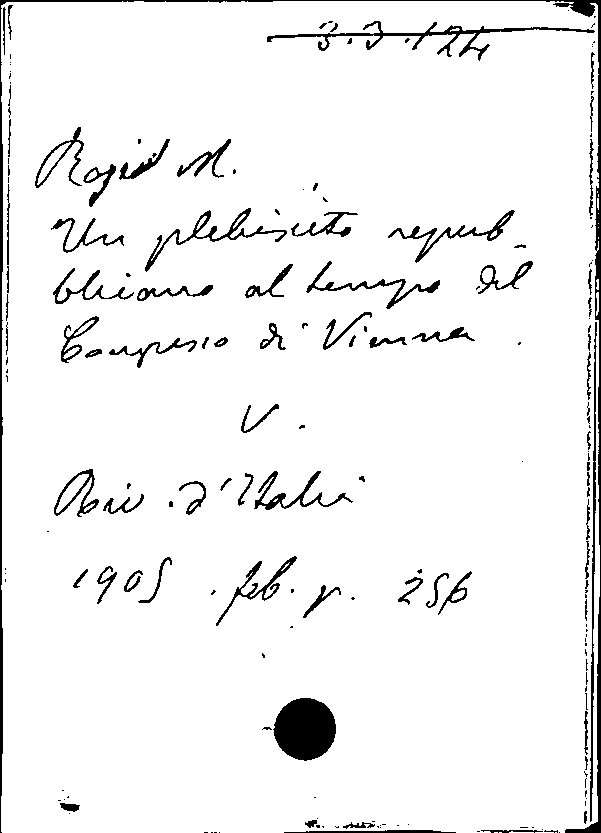 3.3.124
Rogid M.
Un plebiscito repub-
blicano al tempo del
Congresso di Vienna.
V.
Riv. d'Italia
1905. feb. p. 256